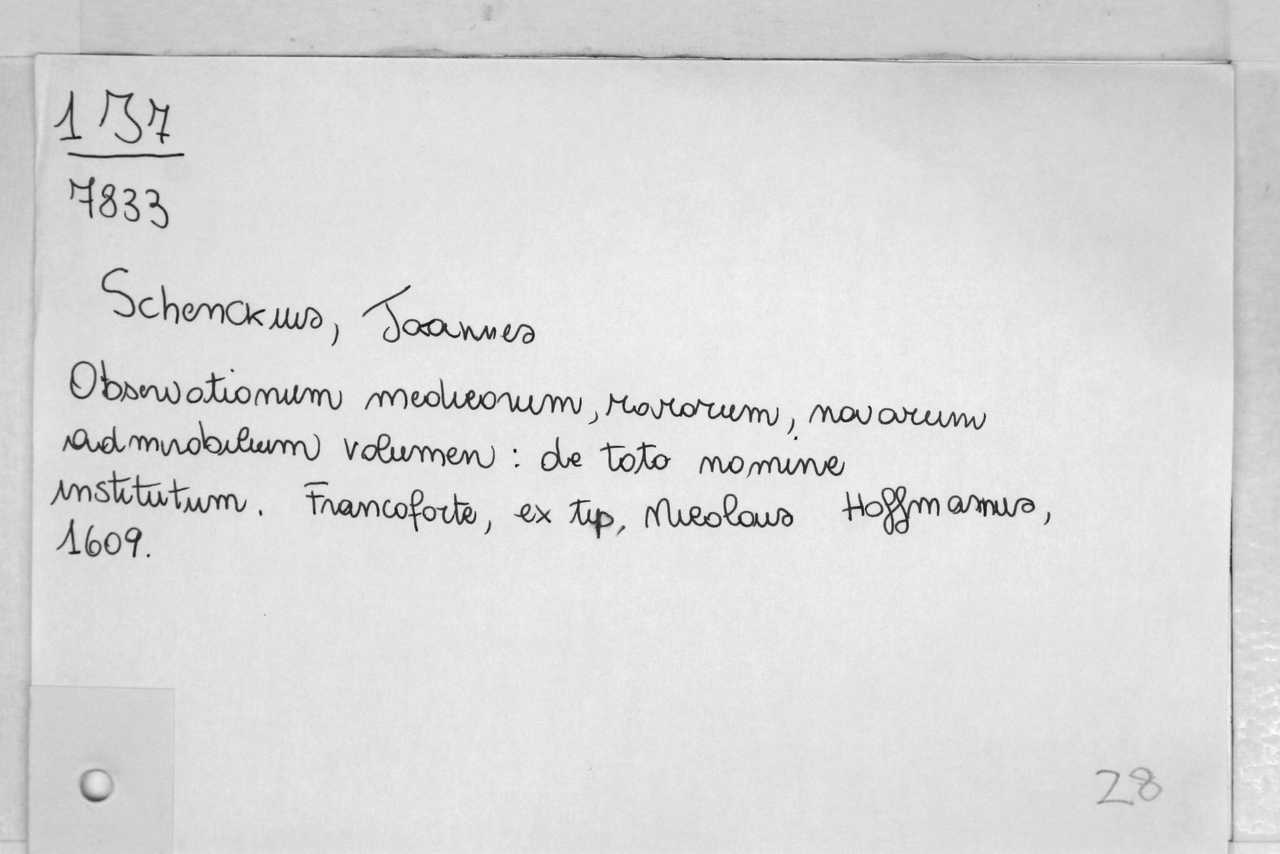 1 137
7833
Schenckius, Joannes
Observationum medicorum, rarorum, novarum
admirabilium volumen : de toto nomine
institutum. Francoforte, ex tip, Nicolaus Hoffmanus,
1609.
28